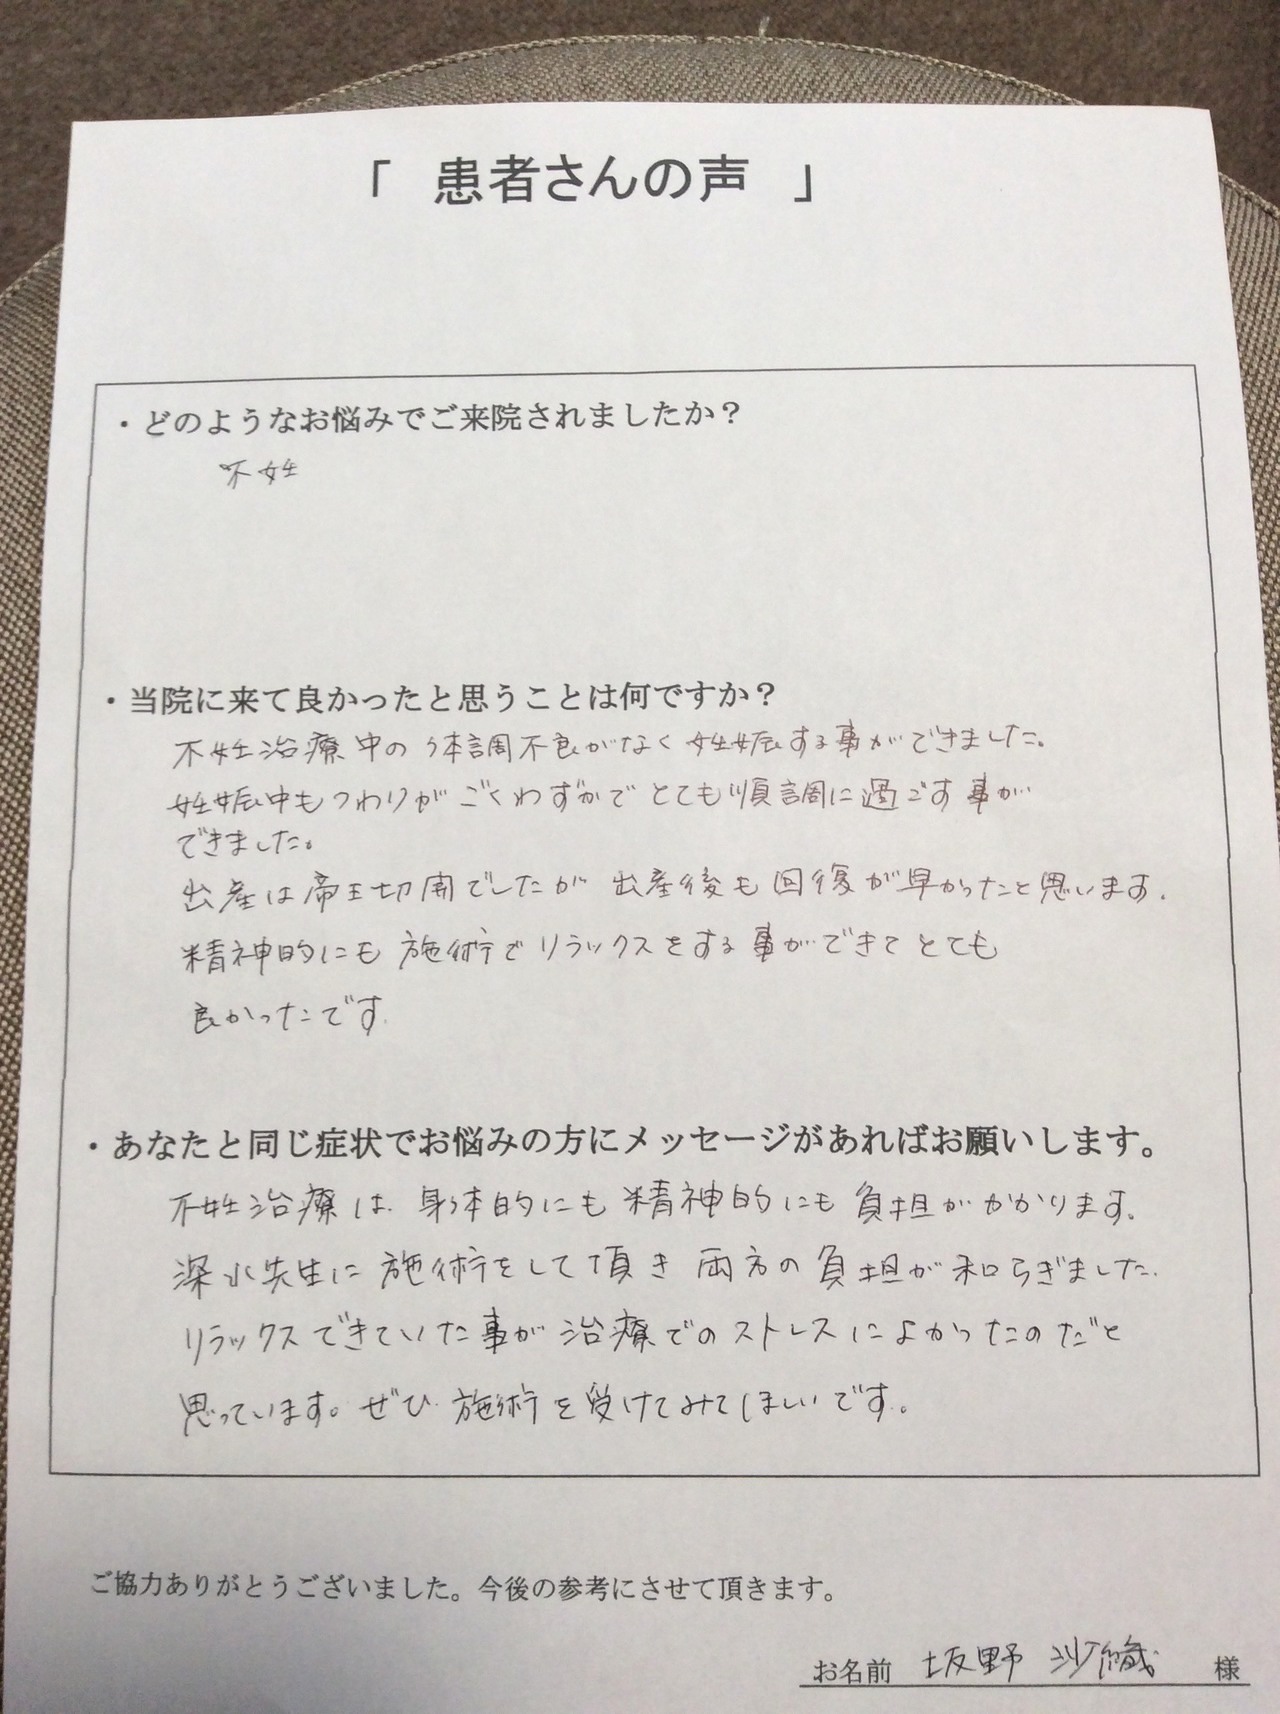 「　患者さんの声　」
・どのようなお悩みでご来院されましたか？
不妊
・当院に来て良かったと思うことは何ですか？
不妊治療中の体調不良がなく妊娠する事ができました。
妊娠中もつわりがごくわずかでとても順調に過ごす事が
できました。
出産は帝王切開でしたが出産後も回復が早かったと思います。
精神的にも施術でリラックスをする事ができてとても
良かったです。
・あなたと同じ症状でお悩みの方にメッセージがあればお願いします。
不妊治療は、身体的にも精神的にも負担がかかります。
深水先生に施術をして頂き両方の負担が和らぎました。
リラックスできていた事が治療でのストレスによかったのだと
思っています。ぜひ施術を受けてみてほしいです。
ご協力ありがとうございました。今後の参考にさせて頂きます。
お名前　坂野　沙織　様